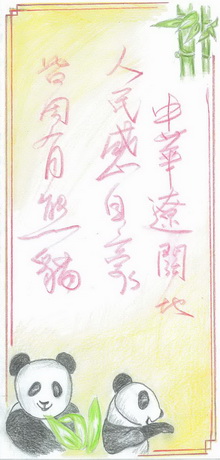 中華遼闊地
人民感自豪
皆因有熊貓